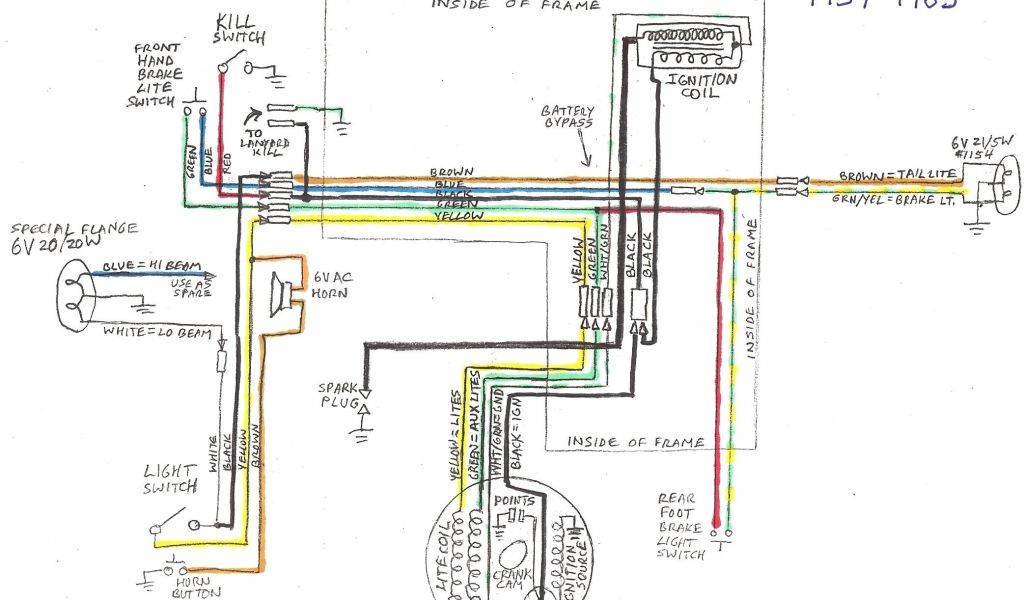 INSIDE OF FRAME
KILL
SWITCH
FRONT
HAND
BRAKE
LITE
SWITCH
TO
LANYARD
KILL
GREEN
BLUE
RED
IGNITION
COIL
BATTERY
BYPASS
BROWN
BLUE
BLACK
GREEN
YELLOW
6V 21/5W
#1154
BROWN = TAIL LITE
GRN/YEL = BRAKE LT.
SPECIAL FLANGE
6V 20/20W
BLUE = HI BEAM
USE AS
SPARE
WHITE = LO BEAM
6VAC
HORN
YELLOW
GREEN
WHT/GRN
BLACK
BLACK
INSIDE OF FRAME
SPARK
PLUG
INSIDE OF FRAME
WHITE
BLACK
YELLOW
BROWN
YELLOW = LITES
GREEN = AUX LITES
WHT/GRN = GND
BLACK = IGN
LIGHT
SWITCH
HORN
BUTTON
POINTS
CRANK
CAM
LITE COIL
IGNITION
SOURCE
REAR
FOOT
BRAKE
LIGHT
SWITCH